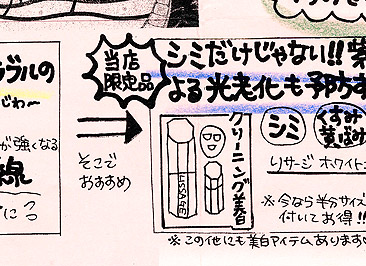 ラブルの
じわ〜
が強くなる
線
そこで
おすすめ
当店
限定品
シミだけじゃない!!紫
よる光老化も予防す
クリーニング美白
LISSAGE
シミ
くすみ
黄ばみ
リサージ ホワイト
※今なら半分サイズ
付いてお得!!
※この他にも美白アイテムあります